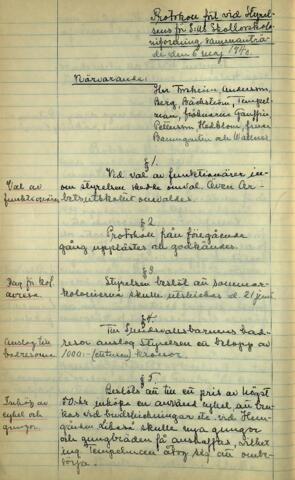 Protokoll fört vid Styrel-
sens för S:lls Skollovskolo-
niförening sammanträ-
de den 6 maj 1940.
Närvarande:
Hrr Andersson,
Berg, Bäckström, Tempel-
man, fröknarna
Pettersson Hedblom, fruar
Baumgarten och Wallner.
§ 1.
Val av
funktionärer
Vid val av funktionärer in-
om styrelsen skedde omval. Även Ar-
betsutskottet omvaldes.
§ 2.
Protokoll från föregående
gång upplästes och godkändes.
§ 3
Dag för kol.
avresa.
Styrelsen beslöt att sommar-
kolonierna skulle utskickas d. 21 juni.
§ 4.
Anslag till
badresorna
Till Sundsvallsbarnens bad-
resor anslog styrelsen ett belopp av
1000:- (ettusen) kronor.
§ 5.
Inköp av
cykel och
gungor.
Beslöts att till ett pris av högst
50:- kr inköpa en använd cykel att bru-
kas vid budskickningar etc. vid Hem-
gården skulle nya gungor
och gungbräden få anskaffas, vilket
ing. Tempelman åtog sig att ombe-
sörja.